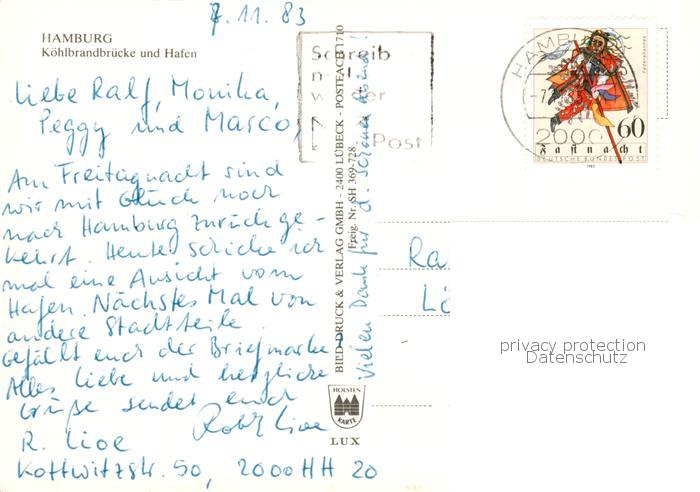 7.11.83
HAMBURG
Köhlbrandbrücke und Hafen
Liebe Ralf, Monika,
Peggy und Marco,
Am Freitagnacht sind
wir mit Glück noch
nach Hamburg zurückge-
kehrt. Heute schicke ich
mal eine Ansicht vom
Hafen. Nächstes Mal von
andere Stadtteile.
Gefällt euch der Briefmarke?
Alles liebe und herzliche
Grüße sendet euch
R. Lioe
Kottwitzstr. 50, 2000 HH 20
Vielen Dank für d. schönen Abend!
BILD-DRUCK & VERLAG GMBH · 2400 LÜBECK · POSTFACH 1710
Freig. Nr. SH 369-728
HOLSTEN
KARTE
LUX
Schreib
Post
HAMB
2000
60
Fastnacht
DEUTSCHE BUNDESPOST
1983
Ra
Lö
privacy protection
Datenschutz